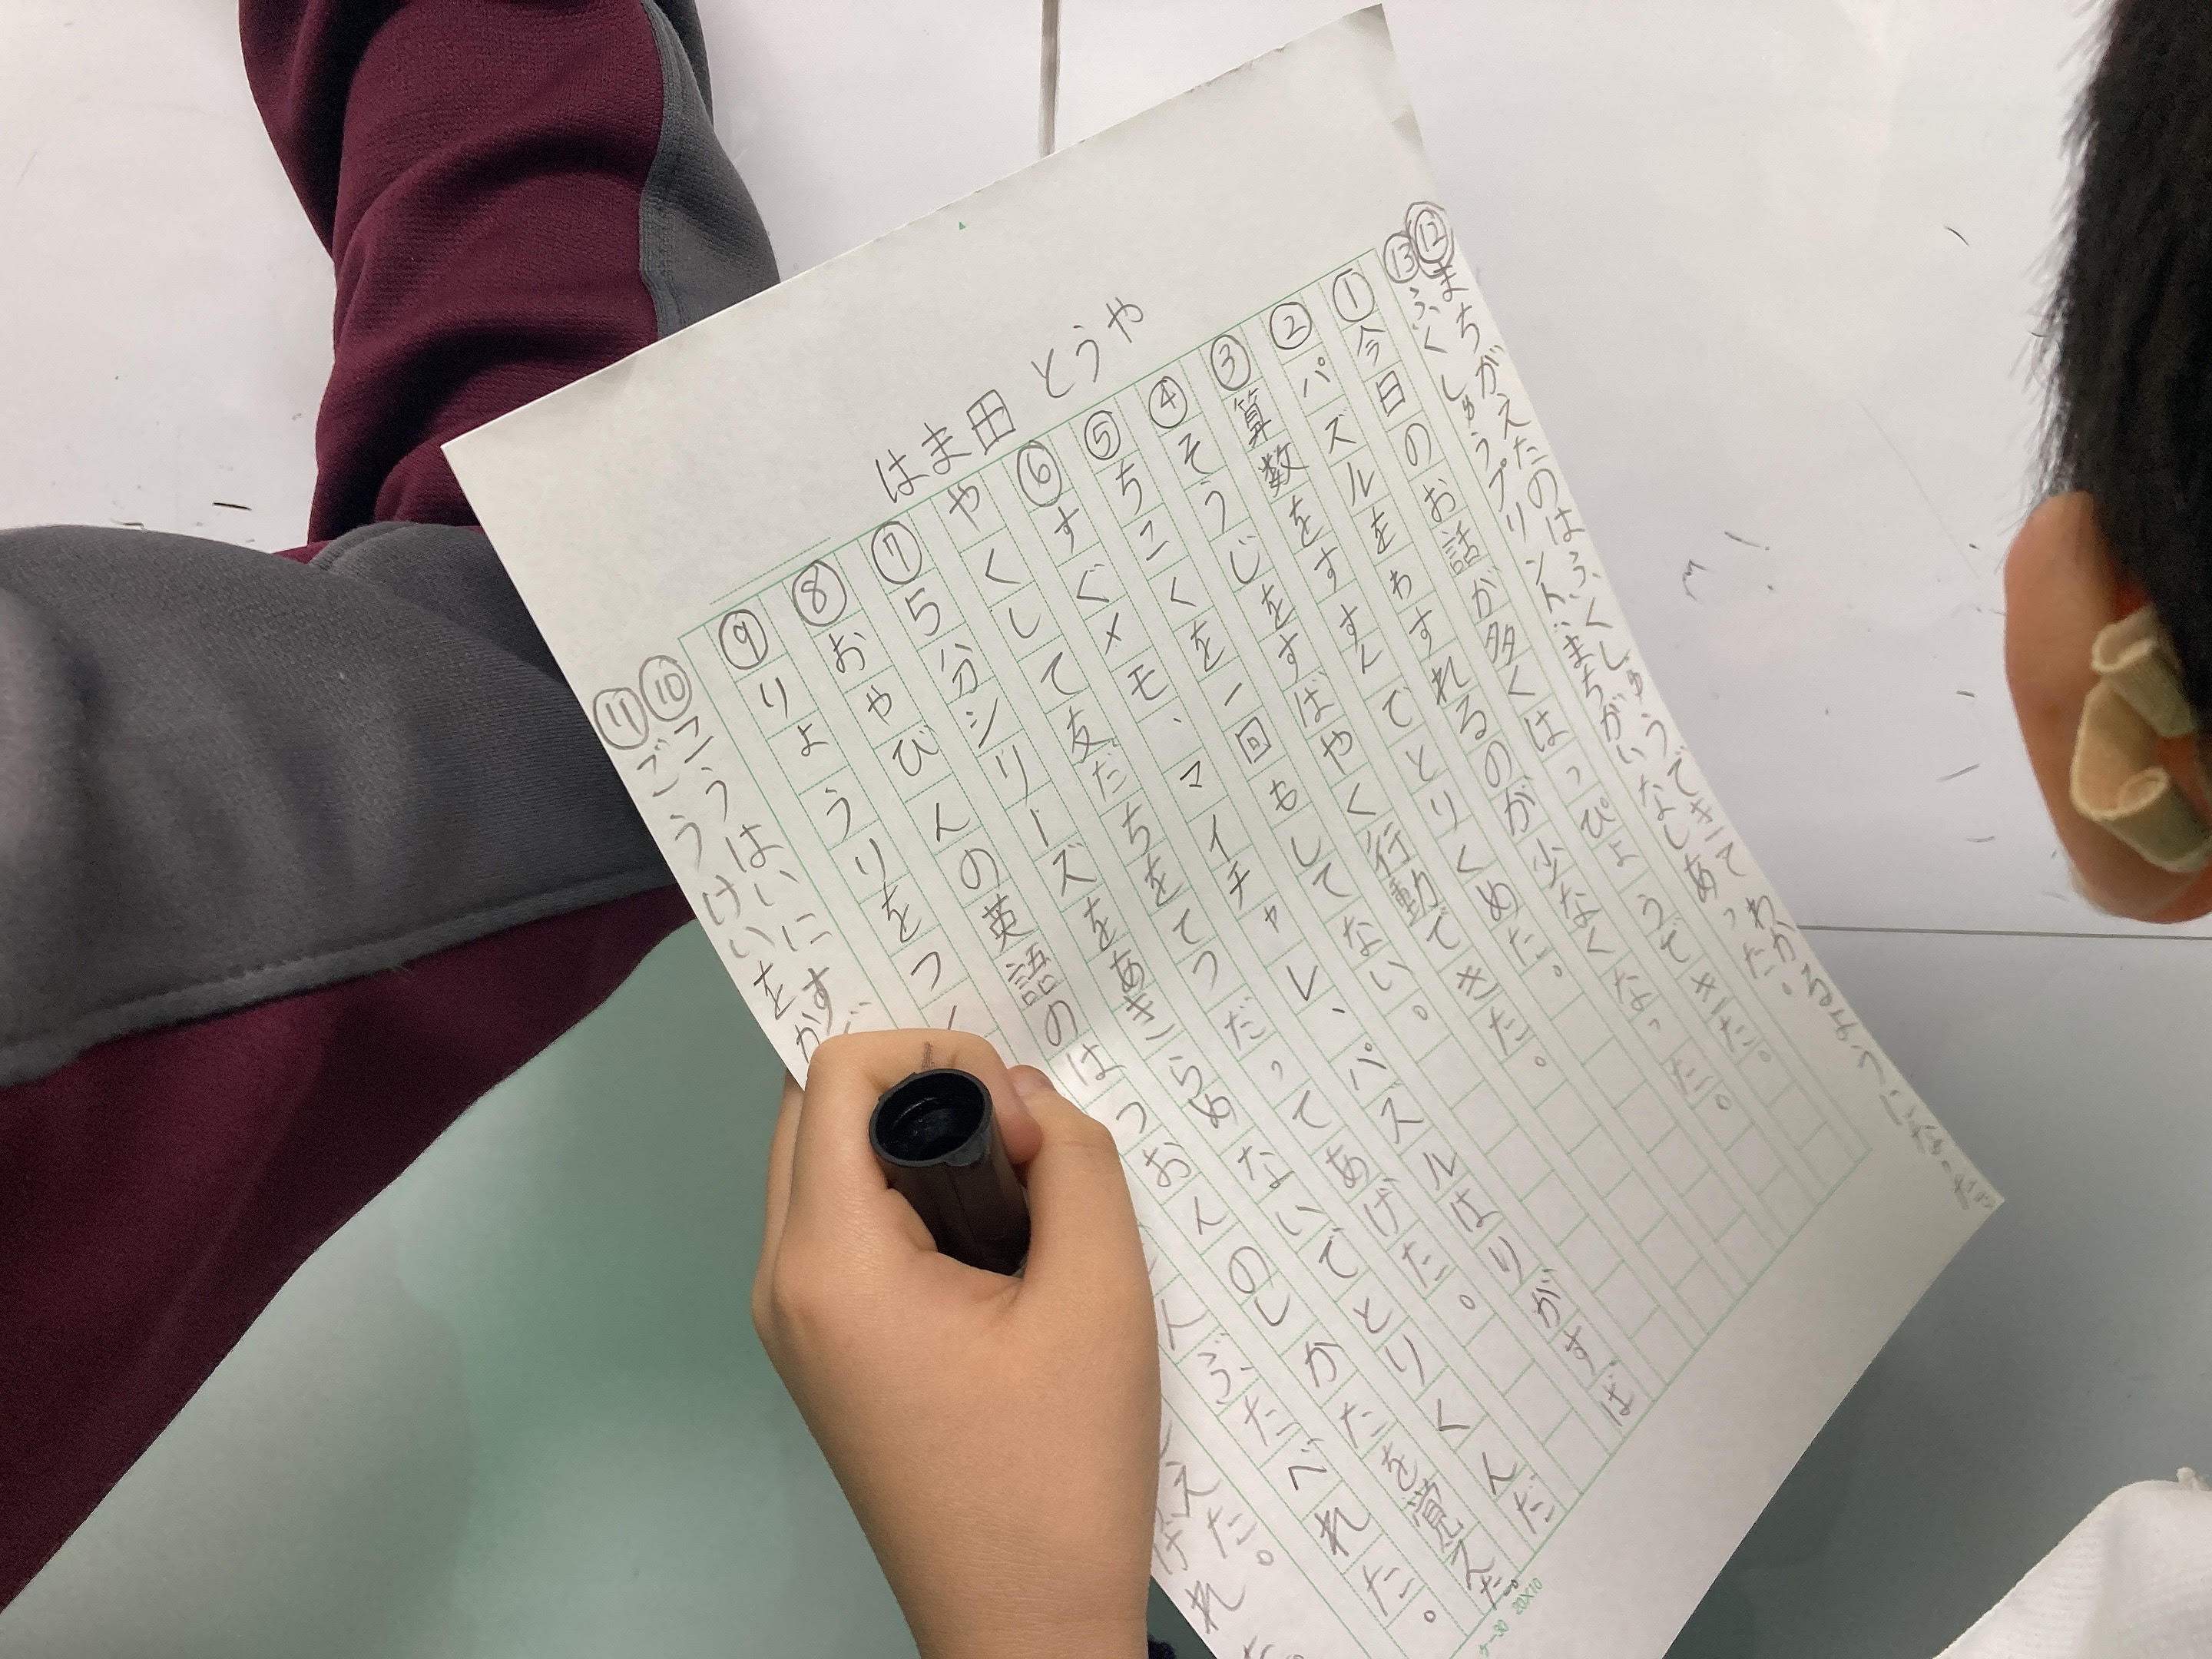 はま田 とうや
⑫まちがえたのはふくしゅうできて
⑬ふくしゅうプリントまちがいなしあった。
①今日のお話が多くはっぴょうできた。
②パズルをわすれるのが少なくなった。
③算数をすすんでとりくめた。
④そうじをすばやく行動できた。
⑤ちこくを一回もしてない。
⑥すぐメモ、マイチャレ、パズルはりがすば
やくして友だちをてつだってあげた。
⑦5分シリーズをあきらめないでとりくんだ
⑧おやびんの英語のはつおんのしかたを覚えた。
⑨りょうりをつ んぶたべれた。
⑩こうはいにす えた。
⑪ごうけいをか
ケ-30 20X10